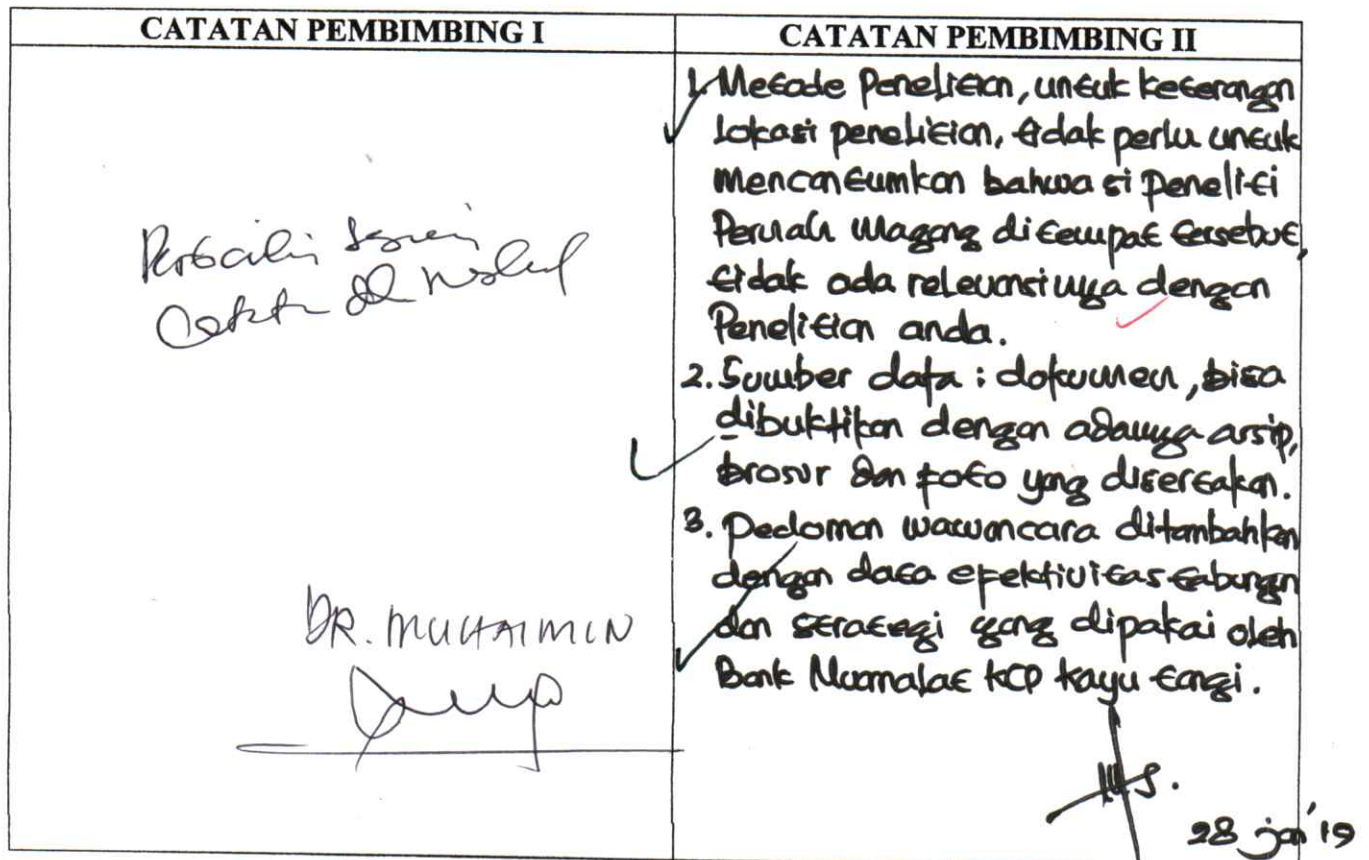 CATATAN PEMBIMBING I
Catatan
DR. MUHAIMIN
CATATAN PEMBIMBING II
1. Metode Penelitian, untuk keterangan
Lokasi penelitian, tidak perlu untuk
mencantumkan bahwa si peneliti
Pernah Magang di tempat tersebut,
tidak ada relevansinya dengan
Penelitian anda.
2. Sumber data : dokumen, bisa
dibuktikan dengan adanya arsip,
brosur dan foto yang disertakan.
3. Pedoman wawancara ditambahkan
dengan data efektivitas tabungan
dan strategi yang dipakai oleh
Bank Muamalat KCP kayu tangi.
28 jan '19